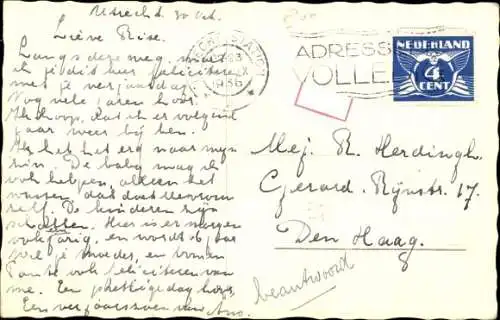 Utrecht 30 Oct.
Lieve Rise.
Langs deze weg, moet
ik je dit keer feliciteren
met je verjaardag.
Nog vele jaren hoor.
Ik hoop, dat ik er volgend
jaar weer bij ben.
Ik heb het erg naar mijn
zin. De baby mag ik
ook helpen, alleen het
wassen, dat doet Mevrouw
zelf. De kinderen zijn
schatten. Hier is er morgen
ook jarig, en wordt 6 jaar
je moeder, en
Tante ook feliciteren van
me. Een prettige dag hoor,
Een verjaarszoen van Ans.
STATION
1936
ADRESS
VOLLE
NEDERLAND
4
CENT
Mej. R. Herdingh.
Gerard. Rijnstr. 17.
Den Haag.
beantwoord